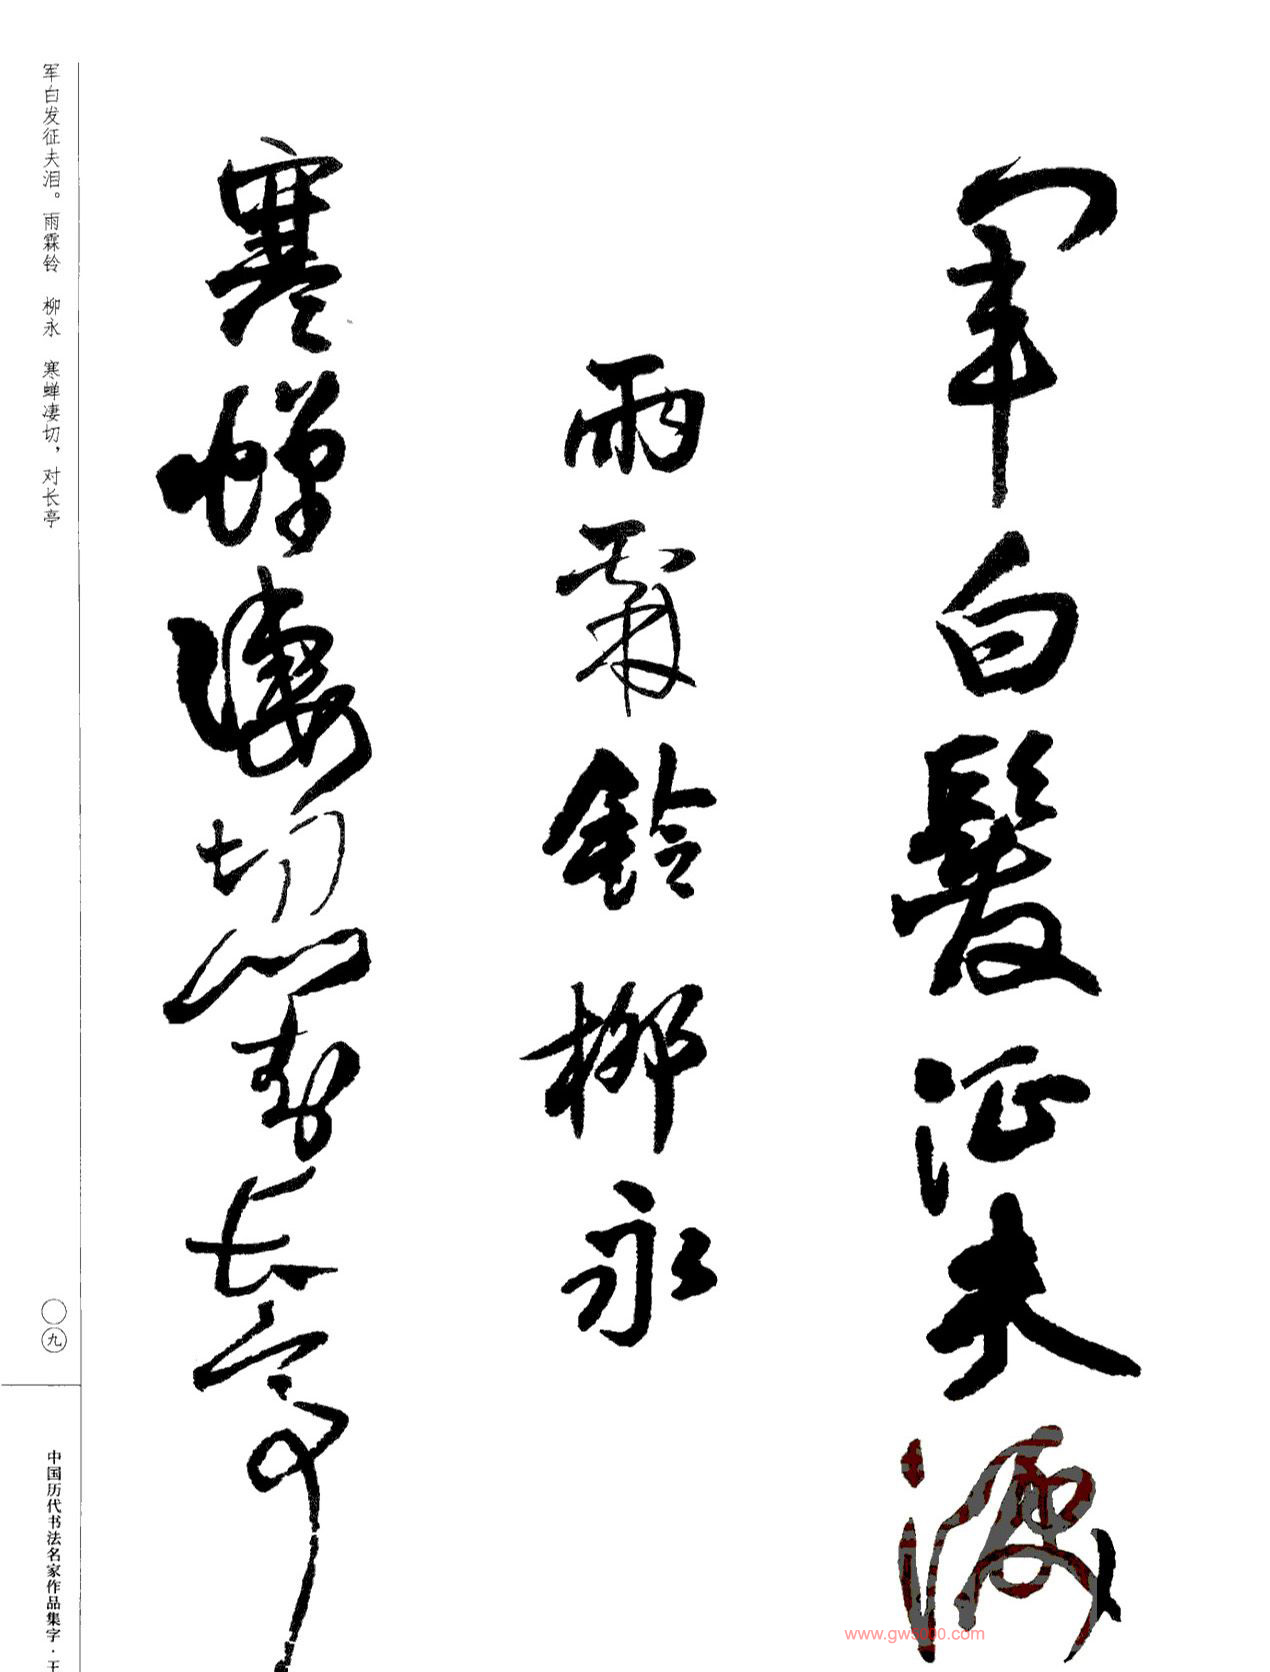 軍白髮征夫淚
雨霖鈴柳永
寒蟬凄切對長亭
军白发征夫泪。雨霖铃　柳永　寒蝉凄切，对长亭
〇九
中国历代书法名家作品集字·王
www.gw5000.com